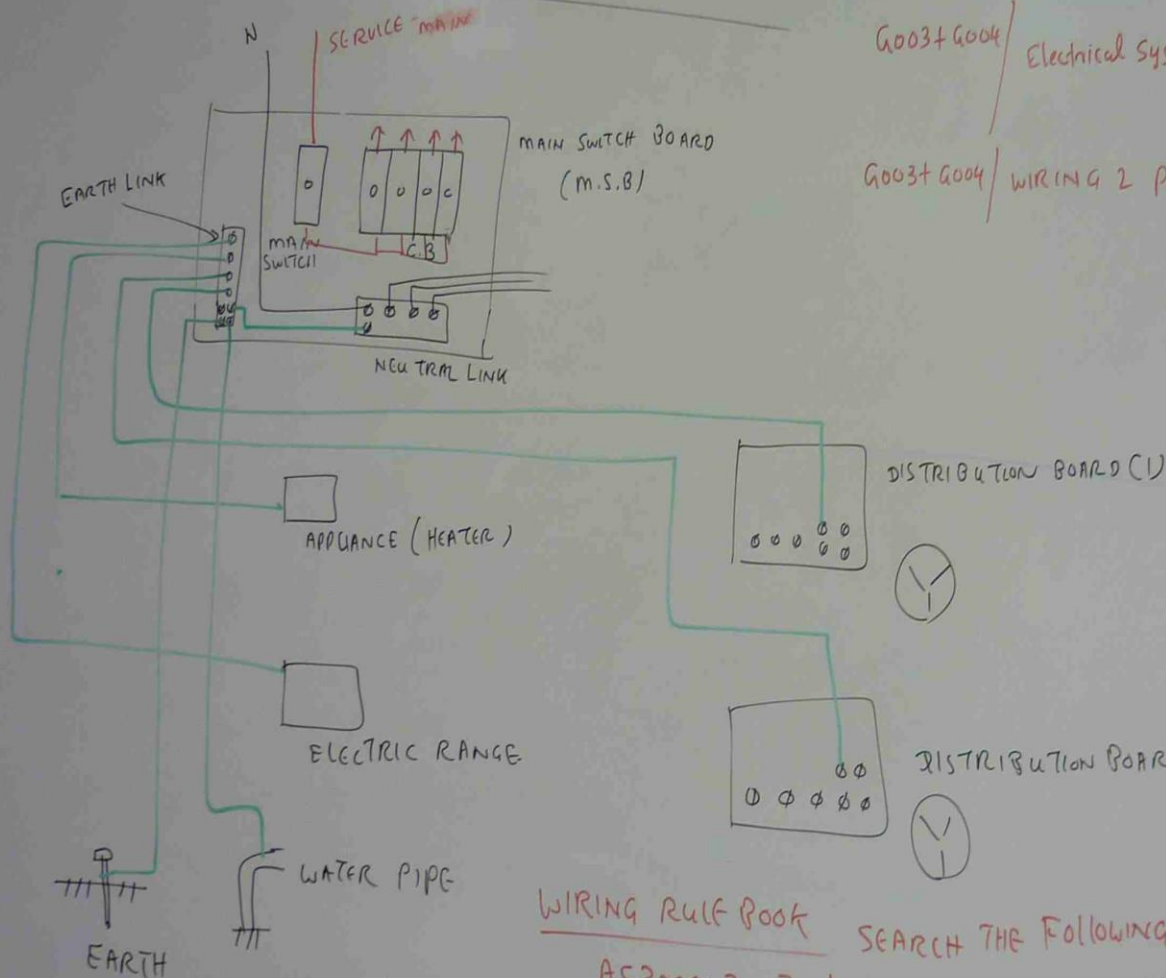 N
SERVICE MAIN
G003+G004/ Electrical Sys
G003+G004/ WIRING 2
MAIN SWITCH BOARD
(M.S.B)
EARTH LINK
MAIN
SWITCH
C.B
NEUTRAL LINK
DISTRIBUTION BOARD (1)
APPLIANCE (HEATER)
ELECTRIC RANGE
DISTRIBUTION BOAR
WATER PIPE
EARTH
WIRING RULE BOOK
SEARCH THE FOLLOWING